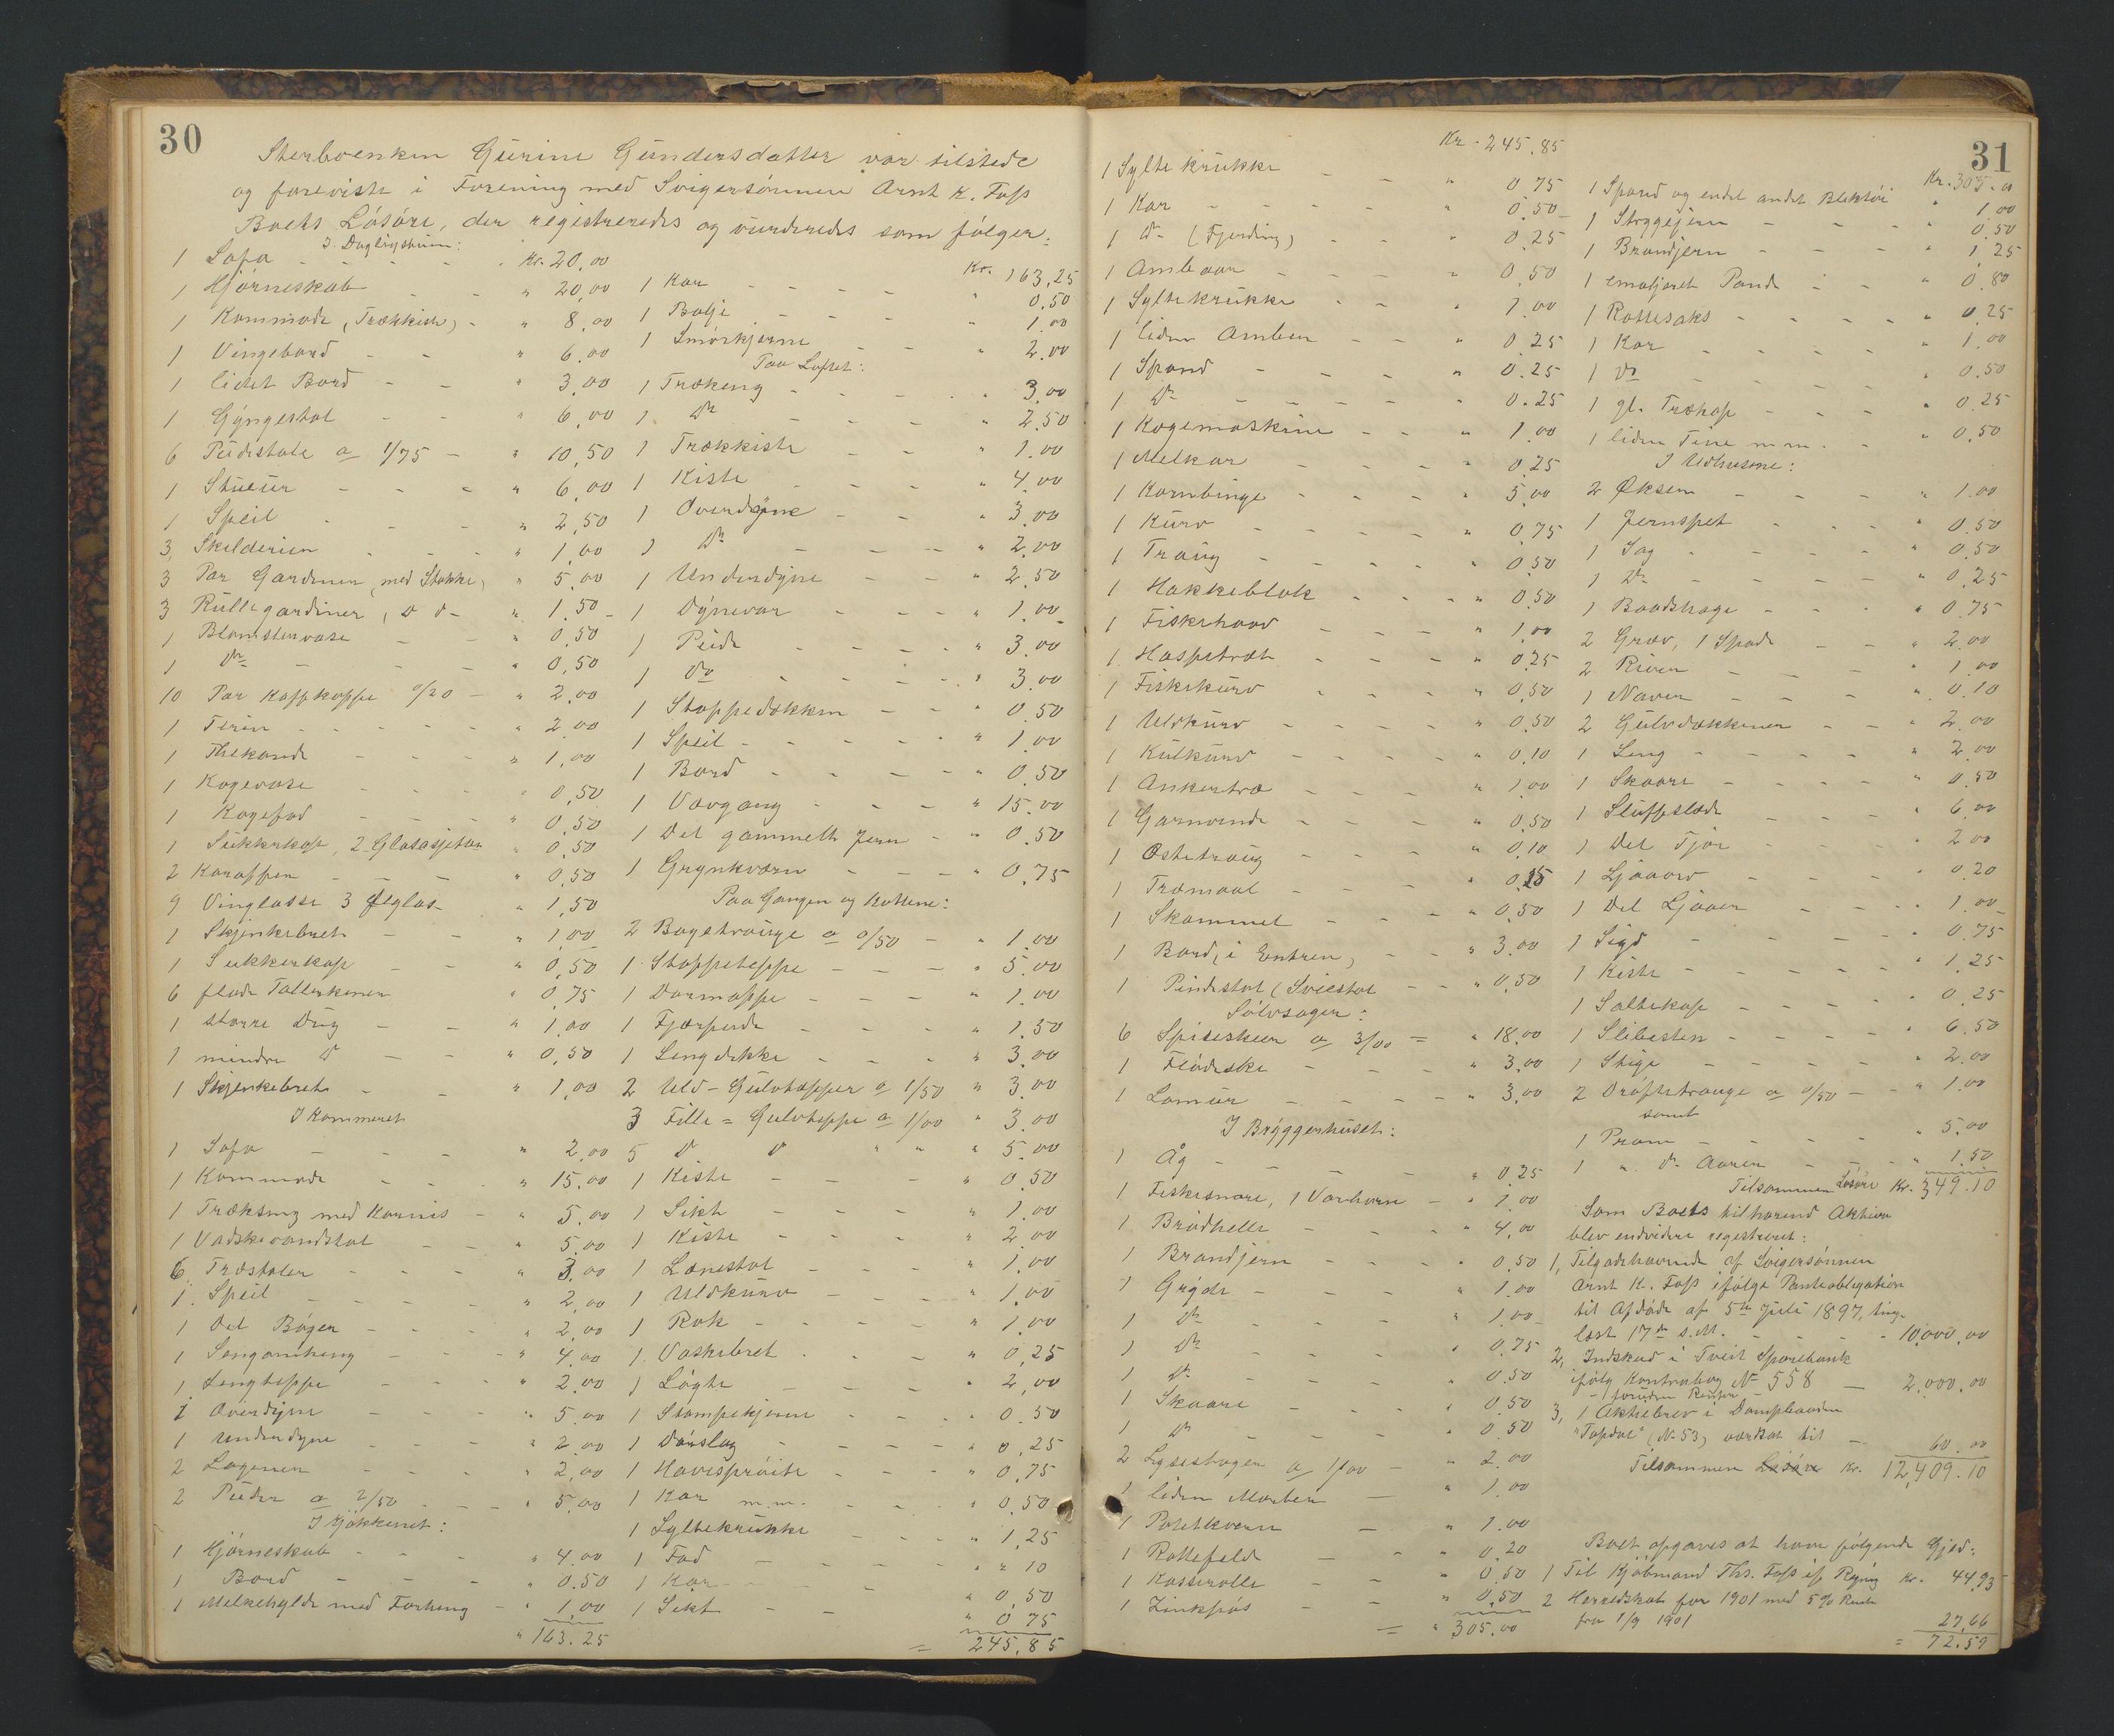 30
Sterboenken Gurine Gundersdatter var tilstede
og foreviste i Forening med Svigersønnen Arnt K. Foss
Boets Løsøre, der registreredes og vurderedes som følger:
I Dagligstuen:
1 Sofa - - - Kr. 20,00
1 Hjørneskab - - " 20,00
1 Kommode (Trækkiste) - " 8,00
1 Vingebord - - " 6,00
1 lidet Bord - - " 3,00
1 Gyngestol - - " 6,00
6 Pudestole a 1/75 - " 10,50
1 Stueur - - - " 6,00
1 Speil - - - " 2,50
3 Skilderier - - - " 1,00
3 Par Gardiner, med Stokke, " 5,00
3 Rullegardiner, D D - " 1,50
1 Blomstervase - - " 0,50
1 Do - - - " 0,50
10 Par Kaffekoppe 0/20 - " 2,00
1 Terin - - - " 2,00
1 Thekande - - - " 1,00
1 Kagevase - - - " 0,50
1 Kagefad - - - " 0,50
1 Sukkerkop, 2 Glasasjetter " 0,50
2 Karaffen - - - " 0,50
9 Vinglasse 3 Ølglas - " 1,50
1 Skjenkebret - - " 1,00
1 Sukkerkop - - " 0,50
6 flade Tallerkener " 0,75
1 større Dug - - " 1,00
1 mindre D - - " 0,50
1 Skjenkebret - - " 1,00
I Kammeret
1 Sofa - - - " 2,00
1 Kommode - - - " 15,00
1 Træseng med Karnis - " 5,00
1 Vadskevandstol - - " 5,00
6 Træstoler - - - " 3,00
1 Speil - - - " 2,00
1 Del Bøger - - - " 2,00
1 Sengomheng - - - " 4,00
1 Sengteppe - - - " 2,00
1 Overdyne - - - " 5,00
1 Underdyne - - - " 2,00
2 Lagener - - - " 2,00
2 Puder a 2/50 - - - " 5,00
I Kjøkkenet:
1 Hjørneskab - - - " 4,00
1 Bord - - - " 0,50
1 Melkehylde med Forheng - " 1,00
" 163.25
Kr. 163,25
1 Kar - - - - " 0,50
1 Balje - - - " 1,00
1 Smørkjerne - - " 2,00
Paa Loftet:
1 Træseng - - - " 3,00
1 Do - - - " 2,50
1 Trækkiste - - " 1,00
1 Kiste - - - " 4,00
1 Overdyne - - " 3,00
1 Do - - - " 2,00
1 Underdyne - - - " 2,50
1 Dynevar - - - " 1,00
1 Pude - - - " 3,00
1 Do - - - " 3,00
1 Stoppedækken - - " 0,50
1 Speil - - - " 1,00
1 Bord - - - " 0,50
1 Vævgang - - - " 15,00
1 Del gammelt Jern - " 0,50
1 Grynkværn - - - " 0,75
Paa Gangen og Kottene:
2 Bagetrauge a 0/50 - " 1,00
1 Stoppeteppe - - - " 5,00
1 Dørmatte - - - " 1,00
1 Fjærpude - - - " 1,50
1 Sengdekke - - - " 3,00
2 Uld-Gulvtæpper a 1/50 " 3,00
3 Fille-Gulvteppe a 1/00 " 3,00
5 D D " " " 5,00
1 Kiste - - - " 0,50
1 Sikt - - - " 1,00
1 Kiste - - - " 2,00
1 Lænestol - - - " 1,00
1 Uldkurv - - - " 1,00
1 Rok - - - " 1,00
1 Vaskebret - - - " 0,25
1 Løgte - - - " 2,00
1 Stampekjerne - - - " 0,50
1 Dørslag - - - " 0,25
1 Havesprøite - - - " 0,75
1 Kar m.m. - - - " 0,50
1 Syltekrukke - - - " 1,25
1 Fad - - - " " 10
1 Kar - - - " 0,50
1 Sikt - - " 0 75
= 245,85
31
Kr. 245,85
1 Syltekrukke - - " 0 75
1 Kar - - - " 0,50
1 Do (Fjerding) - - " 0,25
1 Ambaar - - - " 0,50
1 Syltekrukke - - " 1,00
1 liden Amber - - " 0 25
1 Spand - - - " 0,25
1 Do - - - - " 0.25
1 Kogemaskine - - " 1,00
1 Melkar - - - " 0,25
1 Kornbinge - - - " 5,00
1 Kurv - - - - " 0,75
1 Traug - - - - " 0,50
1 Hakkeblok - - - " 0,50
1 Fiskehaav - - - " 1,00
1 Haspetræ - - - " 0,25
1 Fiskekurv - - - " 0,50
1 Uldkurv - - - " 0,50
1 Kulkurv - - - " 0,10
1 Ankertræ - - - " 1,00
1 Garnvinde - - - " 0,50
1 Ostetraug - - - " 0,10
1 Træmaal - - - " 0,15
1 Skammel - - - " 0,50
1 Bord, i Entreen, - - " 3,00
1 Pindestol (Sviestol - - " 0,50
Sølvsager:
6 Spiseskeer a 3/00 = " 18,00
1 Flødeske - - - " 3,00
1 Lomur - - - - " 3,00
I Bryggerhuset:
1 Åg - - - - " 0,25
1 Fiskesnøre, 1 Varhorn - " 1,00
1 Brødhelle - - - " 4,00
1 Brandjern - - - " 0,50
1 Gryde - - - " 1,00
1 Do - - - - " 1,00
1 Do - - - " 0,75
1 Do - - - " 0,50
1 Skaare - - - " 0,50
1 Do - - - " 0 50
2 Lysestager a 1/00 - " 2,00
1 liden Morter - " 1,00
1 Potetkvern - " 1,00
1 Rottefelde - - " 0,20
1 Kasserolle - - " 0,50
1 Zinkpøs - - " 0,50
= " 305.00
Kr. 305.00
1 Spand og endel andet Bliktøi " 1,00
1 Strygejern - - - " 0,50
1 Brandjern - - - " 1,25
1 emaljeret Pande - - " 0,80
1 Rottesaks - - - " 0,25
1 Kar - - - - " 1,00
1 Do - - - - " 0,50
1 gl. Trækop - - - " 0.25
1 liden Tine m.m. - " 0,50
I Udhusene:
2 Økser - - - " 1,00
1 Jernspet - - - " 0,50
1 Sag - - - - " 0,50
1 Do - - - - " 0,25
1 Baadshage - - - " 0,75
2 Grev, 1 Spade - - " 2,00
2 River - - - " 1,00
1 Naver - - - " 0.10
2 Gulvdækkener - - " 2,00
1 Seng - - - - " 2,00
1 Skaare - - - " 0,50
1 Sluffslæde - - - " 6,00
1 Del Tjor - - - " 2,00
1 Ljaaorv - - - " 0.20
1 Del Ljaaer - - - " 1,00
1 Sigd - - - " 0,75
1 Kiste - - - - " 1,25
1 Saltekop - - - " 0,25
1 Slibesten - - - " 6,50
1 Stige - - - - " 2,00
2 Drøftetrauge a 0/50 - - " 1,00
samt
1 Pram - - - - " 5,00
1 " Do Aarer - - - " 1,50
Tilsammen Løsøre Kr. 349.10
Som Boets tilhørend Aktiva
blev endvidere registreret:
1, Tilgodehavende af Svigersønnen
Arnt K. Foss ifølge Panteobligation
til Afdøde af 5te Juli 1897, ting-
læst 17de s.M. - - - 10,000,00
2, Indskud i Tveit Sparebank
ifølg Kontrabog No 558 - 2,000,00
- foruden Renter -
3, 1 Aktiebrev i Dampbaaden
"Topdal" (No 53) værdsat til - 60,00
Tilsammen Løsøre Kr. 12,409.10
Boet opgaves at have følgende Gjæld:
1 Til Kjøbmand Ths. Foss if Regning Kr. 44,93
2 Herredskat for 1901 med 5% Rente
fra 1/9 1901 27,66
= 72.59